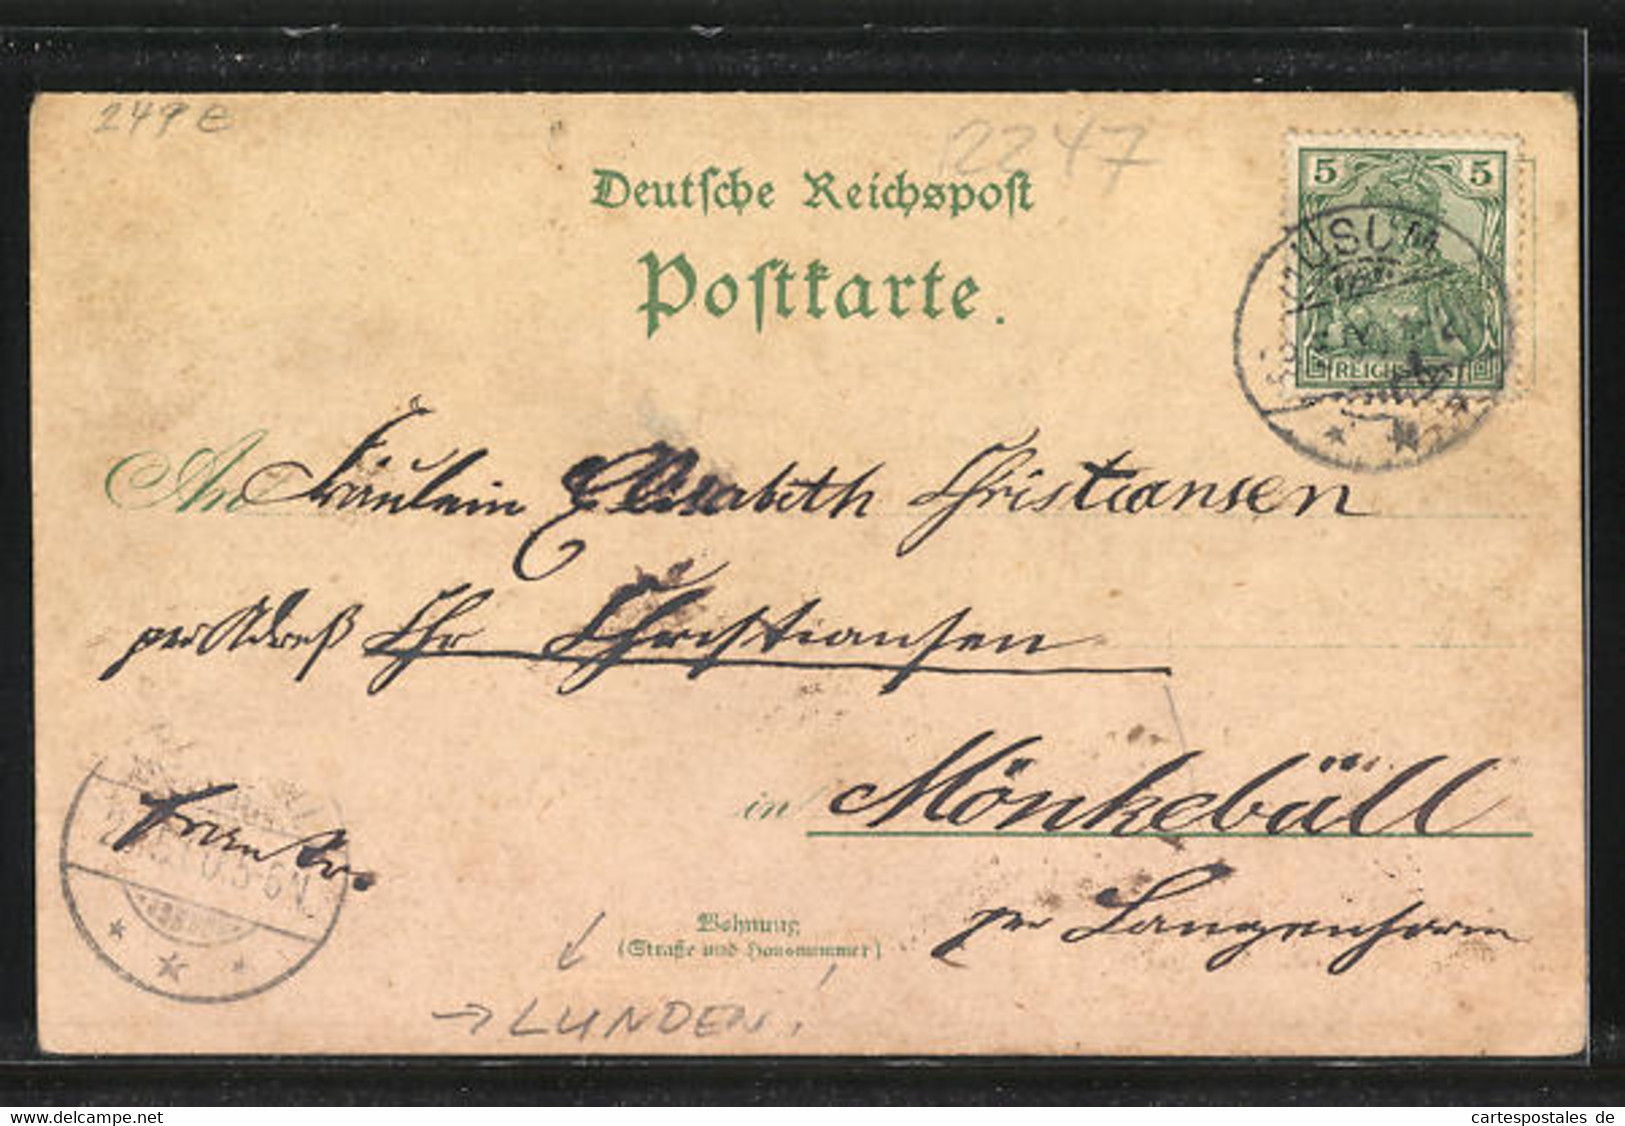 249 E
2247
Deutsche Reichspost
Postkarte.
5 5
REICHSPOST
HUSUM
An Fräulein Elisabeth Christiansen
per Adreß Chr Christiansen
in Mönkebüll
per Langenhorn
Franko.
5-6N
Wohnung
(Straße und Hausnummer)
→ LUNDEN.
www.delcampe.net
cartespostales de